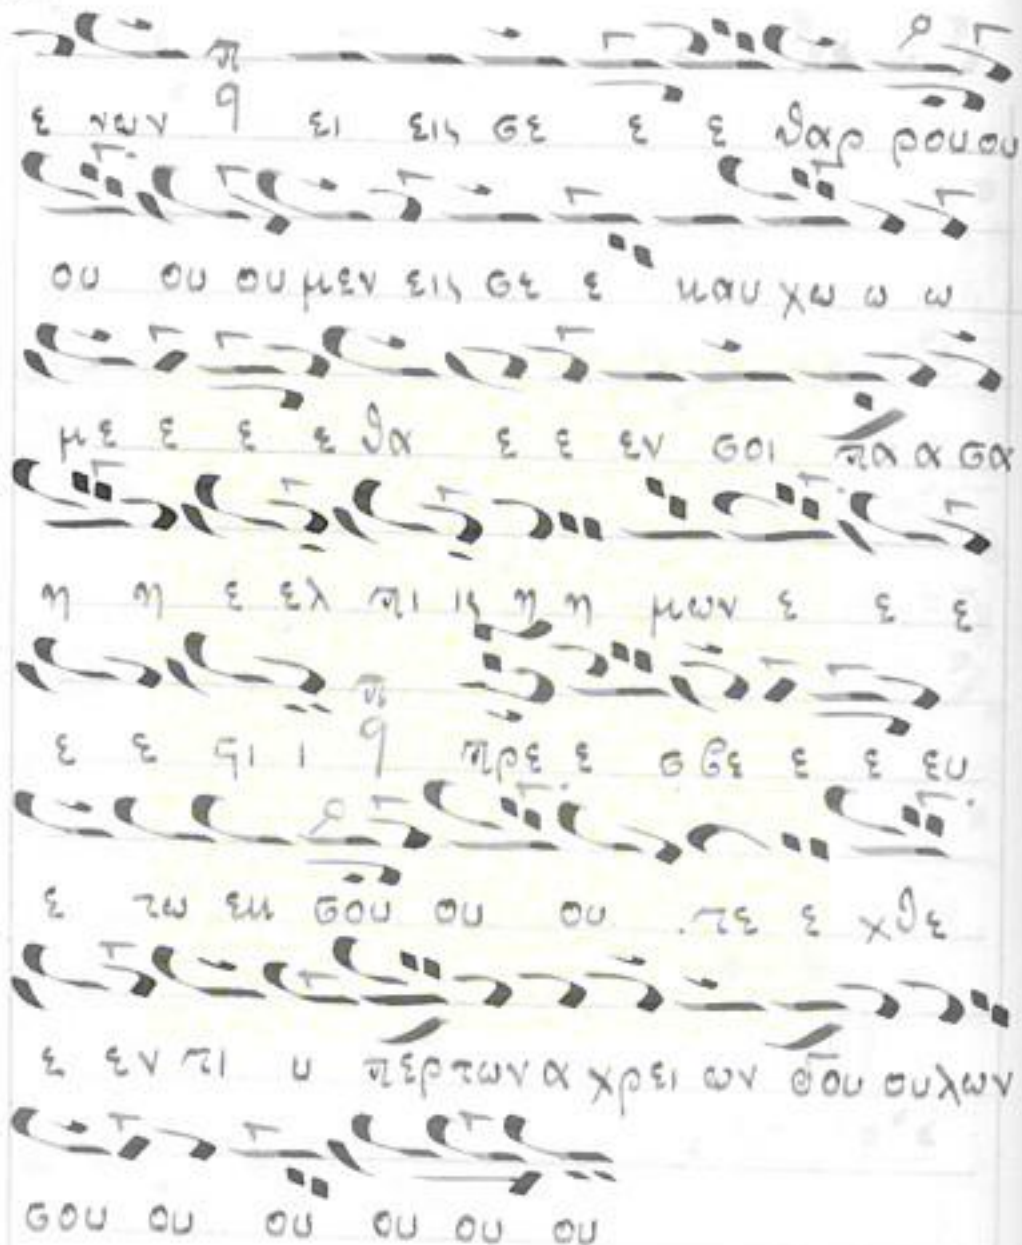 ε νων π ϥ ει εις σε ε ε θαρ ρουου
ου ου ου μεν εις σε ε καυ χω ω ω
με ε ε ε θα ε ε εν σοι πα α σα
η η ε ελ πι ις η η μων ε ε ε
ε ε ςι ι π ϥ πρε ε σβε ε ε ευ
ε τω εκ σου ου ου τε ε χθε
ε εν τι υ περ των α χρει ων δου ουλων
σου ου ου ου ου ου